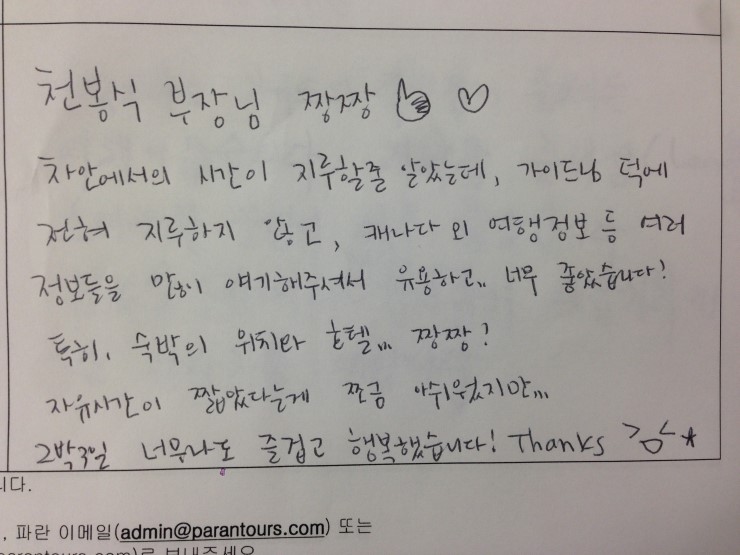 천봉식 부장님 짱짱 👍 ♡
차안에서의 시간이 지루할줄 알았는데, 가이드님 덕에
전혀 지루하지 않고, 캐나다 외 여행정보 등 여러
정보들을 많이 얘기해주셔서 유용하고,, 너무 좋았습니다!
특히, 숙박의 위치와 호텔,,, 짱짱!
자유시간이 짧았다는게 쪼금 아쉬웠지만,,,
2박3일 너무나도 즐겁고 행복했습니다! Thanks >.<*
니다.
, 파란 이메일(admin@parantours.com) 또는
parantours.com)로 보내주세요